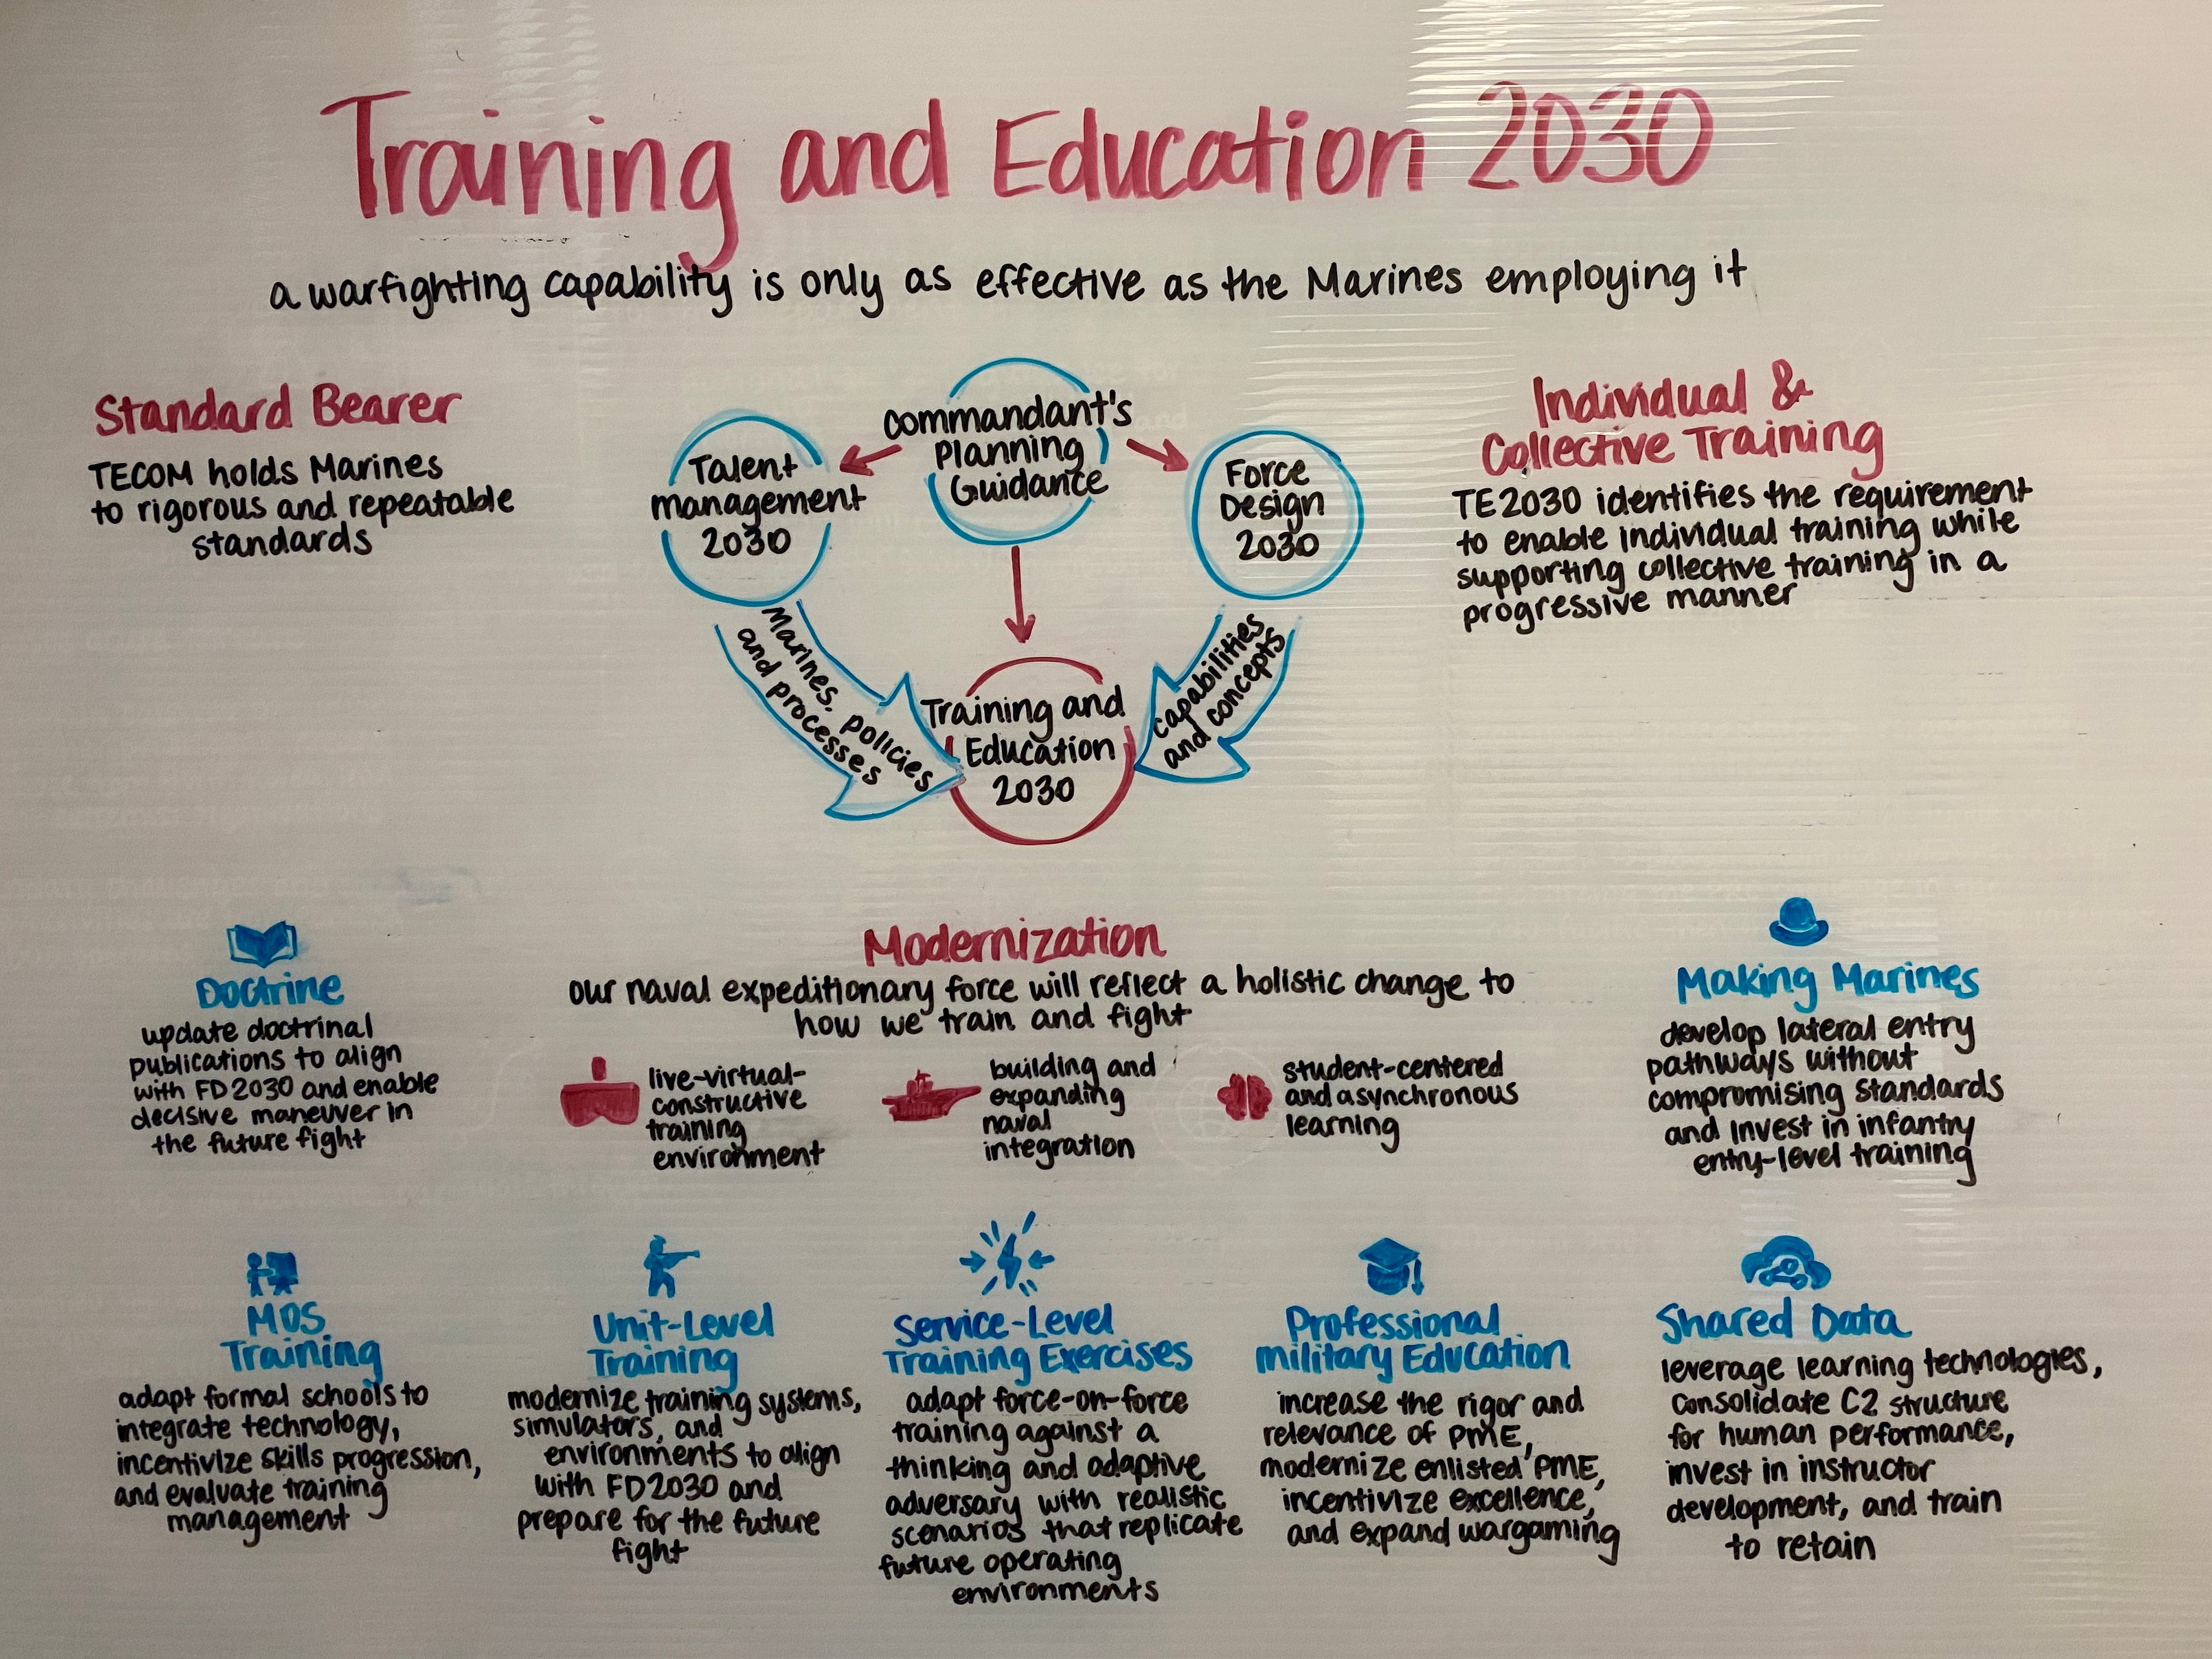 Training and Education 2030
a warfighting capability is only as effective as the Marines employing it
Standard Bearer
TECOM holds Marines
to rigorous and repeatable
standards
Commandant's
Planning
Guidance
Talent
management
2030
Force
Design
2030
Marines, policies
and processes
capabilities
and concepts
Training and
Education
2030
Individual &
Collective Training
TE2030 identifies the requirement
to enable individual training while
supporting collective training in a
progressive manner
Doctrine
update doctrinal
publications to align
with FD2030 and enable
decisive maneuver in
the future fight
Modernization
our naval expeditionary force will reflect a holistic change to
how we train and fight
live-virtual-
constructive
training
environment
building and
expanding
naval
integration
student-centered
and asynchronous
learning
Making Marines
develop lateral entry
pathways without
compromising standards
and invest in infantry
entry-level training
MOS
Training
adapt formal schools to
integrate technology,
incentivize skills progression,
and evaluate training
management
Unit-Level
Training
modernize training systems,
simulators, and
environments to align
with FD2030 and
prepare for the future
fight
Service-Level
Training Exercises
adapt force-on-force
training against a
thinking and adaptive
adversary with realistic
scenarios that replicate
future operating
environments
Professional
Military Education
increase the rigor and
relevance of PME,
modernize enlisted PME,
incentivize excellence,
and expand wargaming
Shared Data
leverage learning technologies,
consolidate C2 structure
for human performance,
invest in instructor
development, and train
to retain